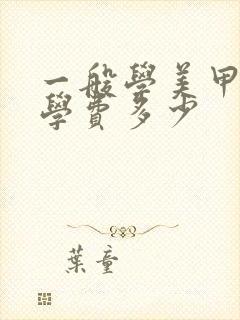 一般學美甲
學費多少
葉童